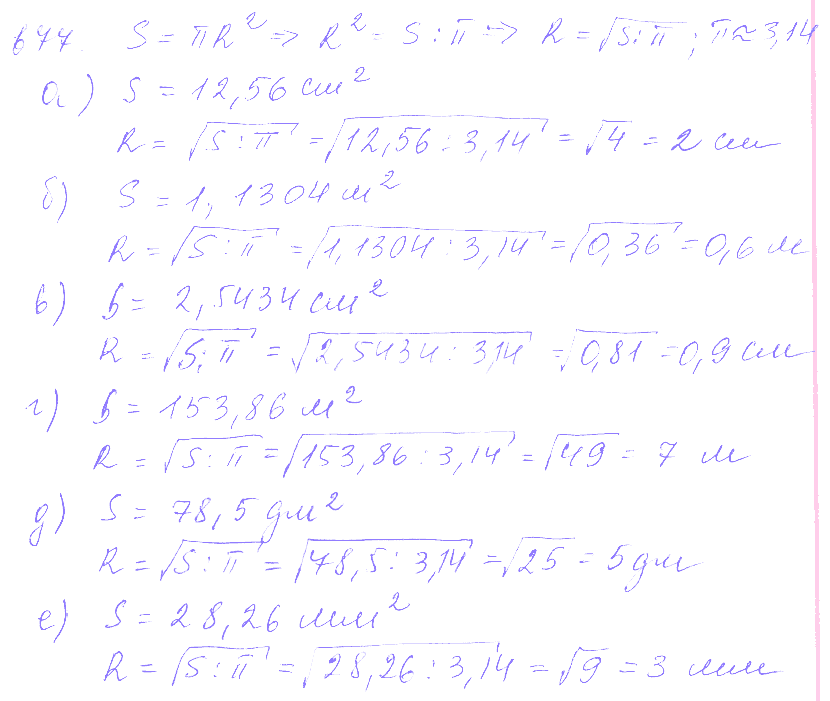 677. S = πR² => R² = S : π => R = √S:π ; π ≈ 3,14
а) S = 12,56 см²
R = √S : π = √12,56 : 3,14 = √4 = 2 см
б) S = 1,1304 м²
R = √S : π = √1,1304 : 3,14 = √0,36 = 0,6 м
в) S = 2,5434 см²
R = √S : π = √2,5434 : 3,14 = √0,81 = 0,9 см
г) S = 153,86 м²
R = √S : π = √153,86 : 3,14 = √49 = 7 м
д) S = 78,5 дм²
R = √S : π = √78,5 : 3,14 = √25 = 5 дм
е) S = 28,26 мм²
R = √S : π = √28,26 : 3,14 = √9 = 3 мм